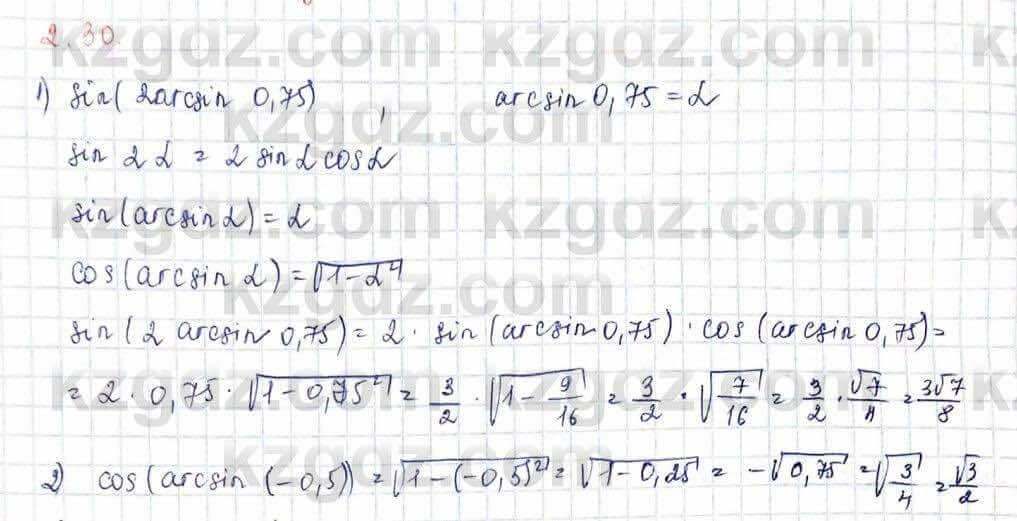 2.30
1) sin(2arcsin 0,75), arcsin 0,75 = α
sin 2α = 2 sin α cos α
sin(arcsin α) = α
cos(arcsin α) = √(1-α²)
sin(2 arcsin 0,75) = 2 · sin(arcsin 0,75) · cos(arcsin 0,75) =
= 2 · 0,75 · √(1-0,75²) = 3/2 · √(1-9/16) = 3/2 · √(7/16) = 3/2 · √7/4 = 3√7/8
2) cos(arcsin (-0,5)) = √(1-(-0,5)²) = √(1-0,25) = -√0,75 = √(3/4) = √3/2
kzgdz.com kzgdz.com
kzgdz.com
kzgdz.com kzgdz.com
kzgdz.com
kzgdz.com kzgdz.com
kzgdz.com